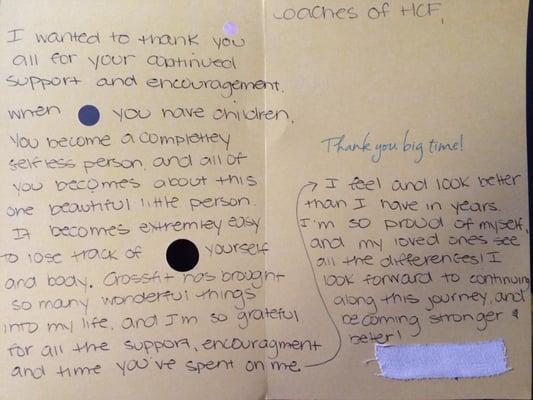 coaches of HCF,
I wanted to thank you
all for your continued
support and encouragement.
When you have children,
you become a completley
selfless person, and all of
you becomes about this
one beautiful little person.
It becomes extremley easy
to lose track of yourself
and body. Crossfit has brought
so many wonderful things
into my life, and I'm so grateful
for all the support, encouragment
and time you've spent on me.
Thank you big time!
I feel and look better
than I have in years.
I'm so proud of myself,
and my loved ones see
all the differences! I
look forward to continuing
along this journey, and
becoming stronger &
better!